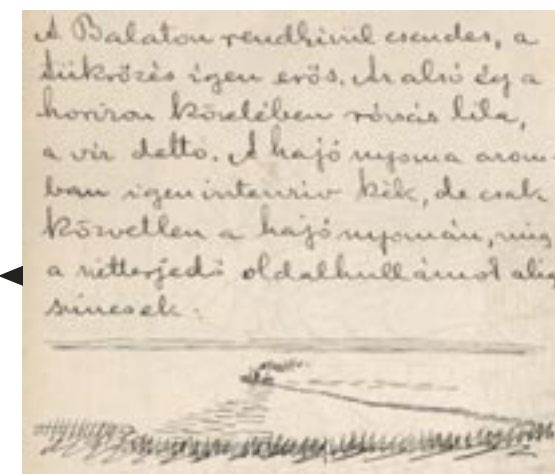 A Balaton rendkívül csendes, a
tükrözés igen erős. Az alsó ég a
horizon közelében rózsás lila,
a víz detto. A hajó nyoma azon-
ban igen intenziv kék, de csak
közvetlen a hajó nyomán, míg
a szétterjedő oldalhullámok alig
szinesek.